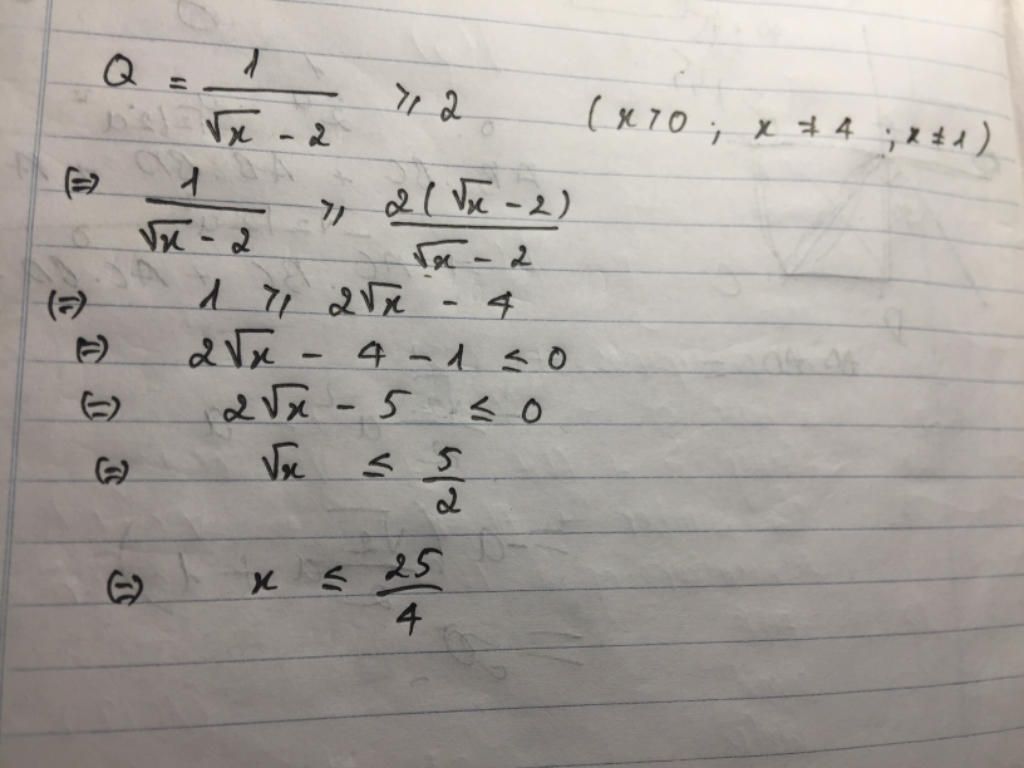 Q = 1/(√x - 2) ⩾ 2 (x > 0 ; x ≠ 4 ; x ≠ 1)
(=) 1/(√x - 2) ⩾ 2(√x - 2)/(√x - 2)
(=) 1 ⩾ 2√x - 4
(=) 2√x - 4 - 1 ≤ 0
(=) 2√x - 5 ≤ 0
(=) √x ≤ 5/2
(=) x ≤ 25/4